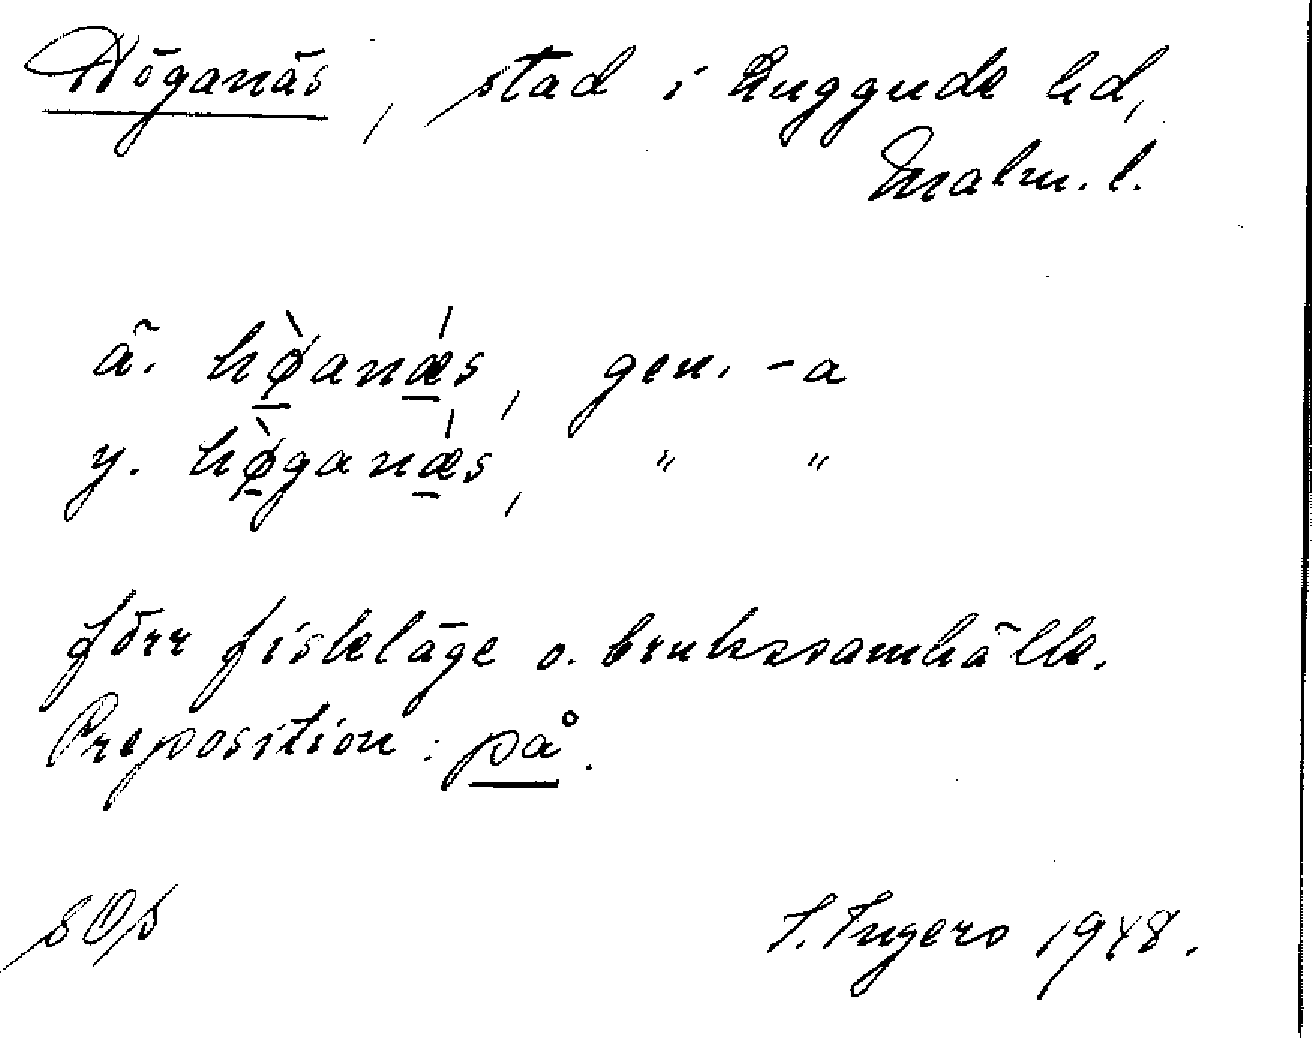 Höganäs, stad i Luggude hd,
Malm. l.
ä. hø̀anǽs, gen. -a
y. hø̀ganǽs, " "
förr fiskeläge o. brukssamhälle.
Preposition: på.
S. Ingers 1948.